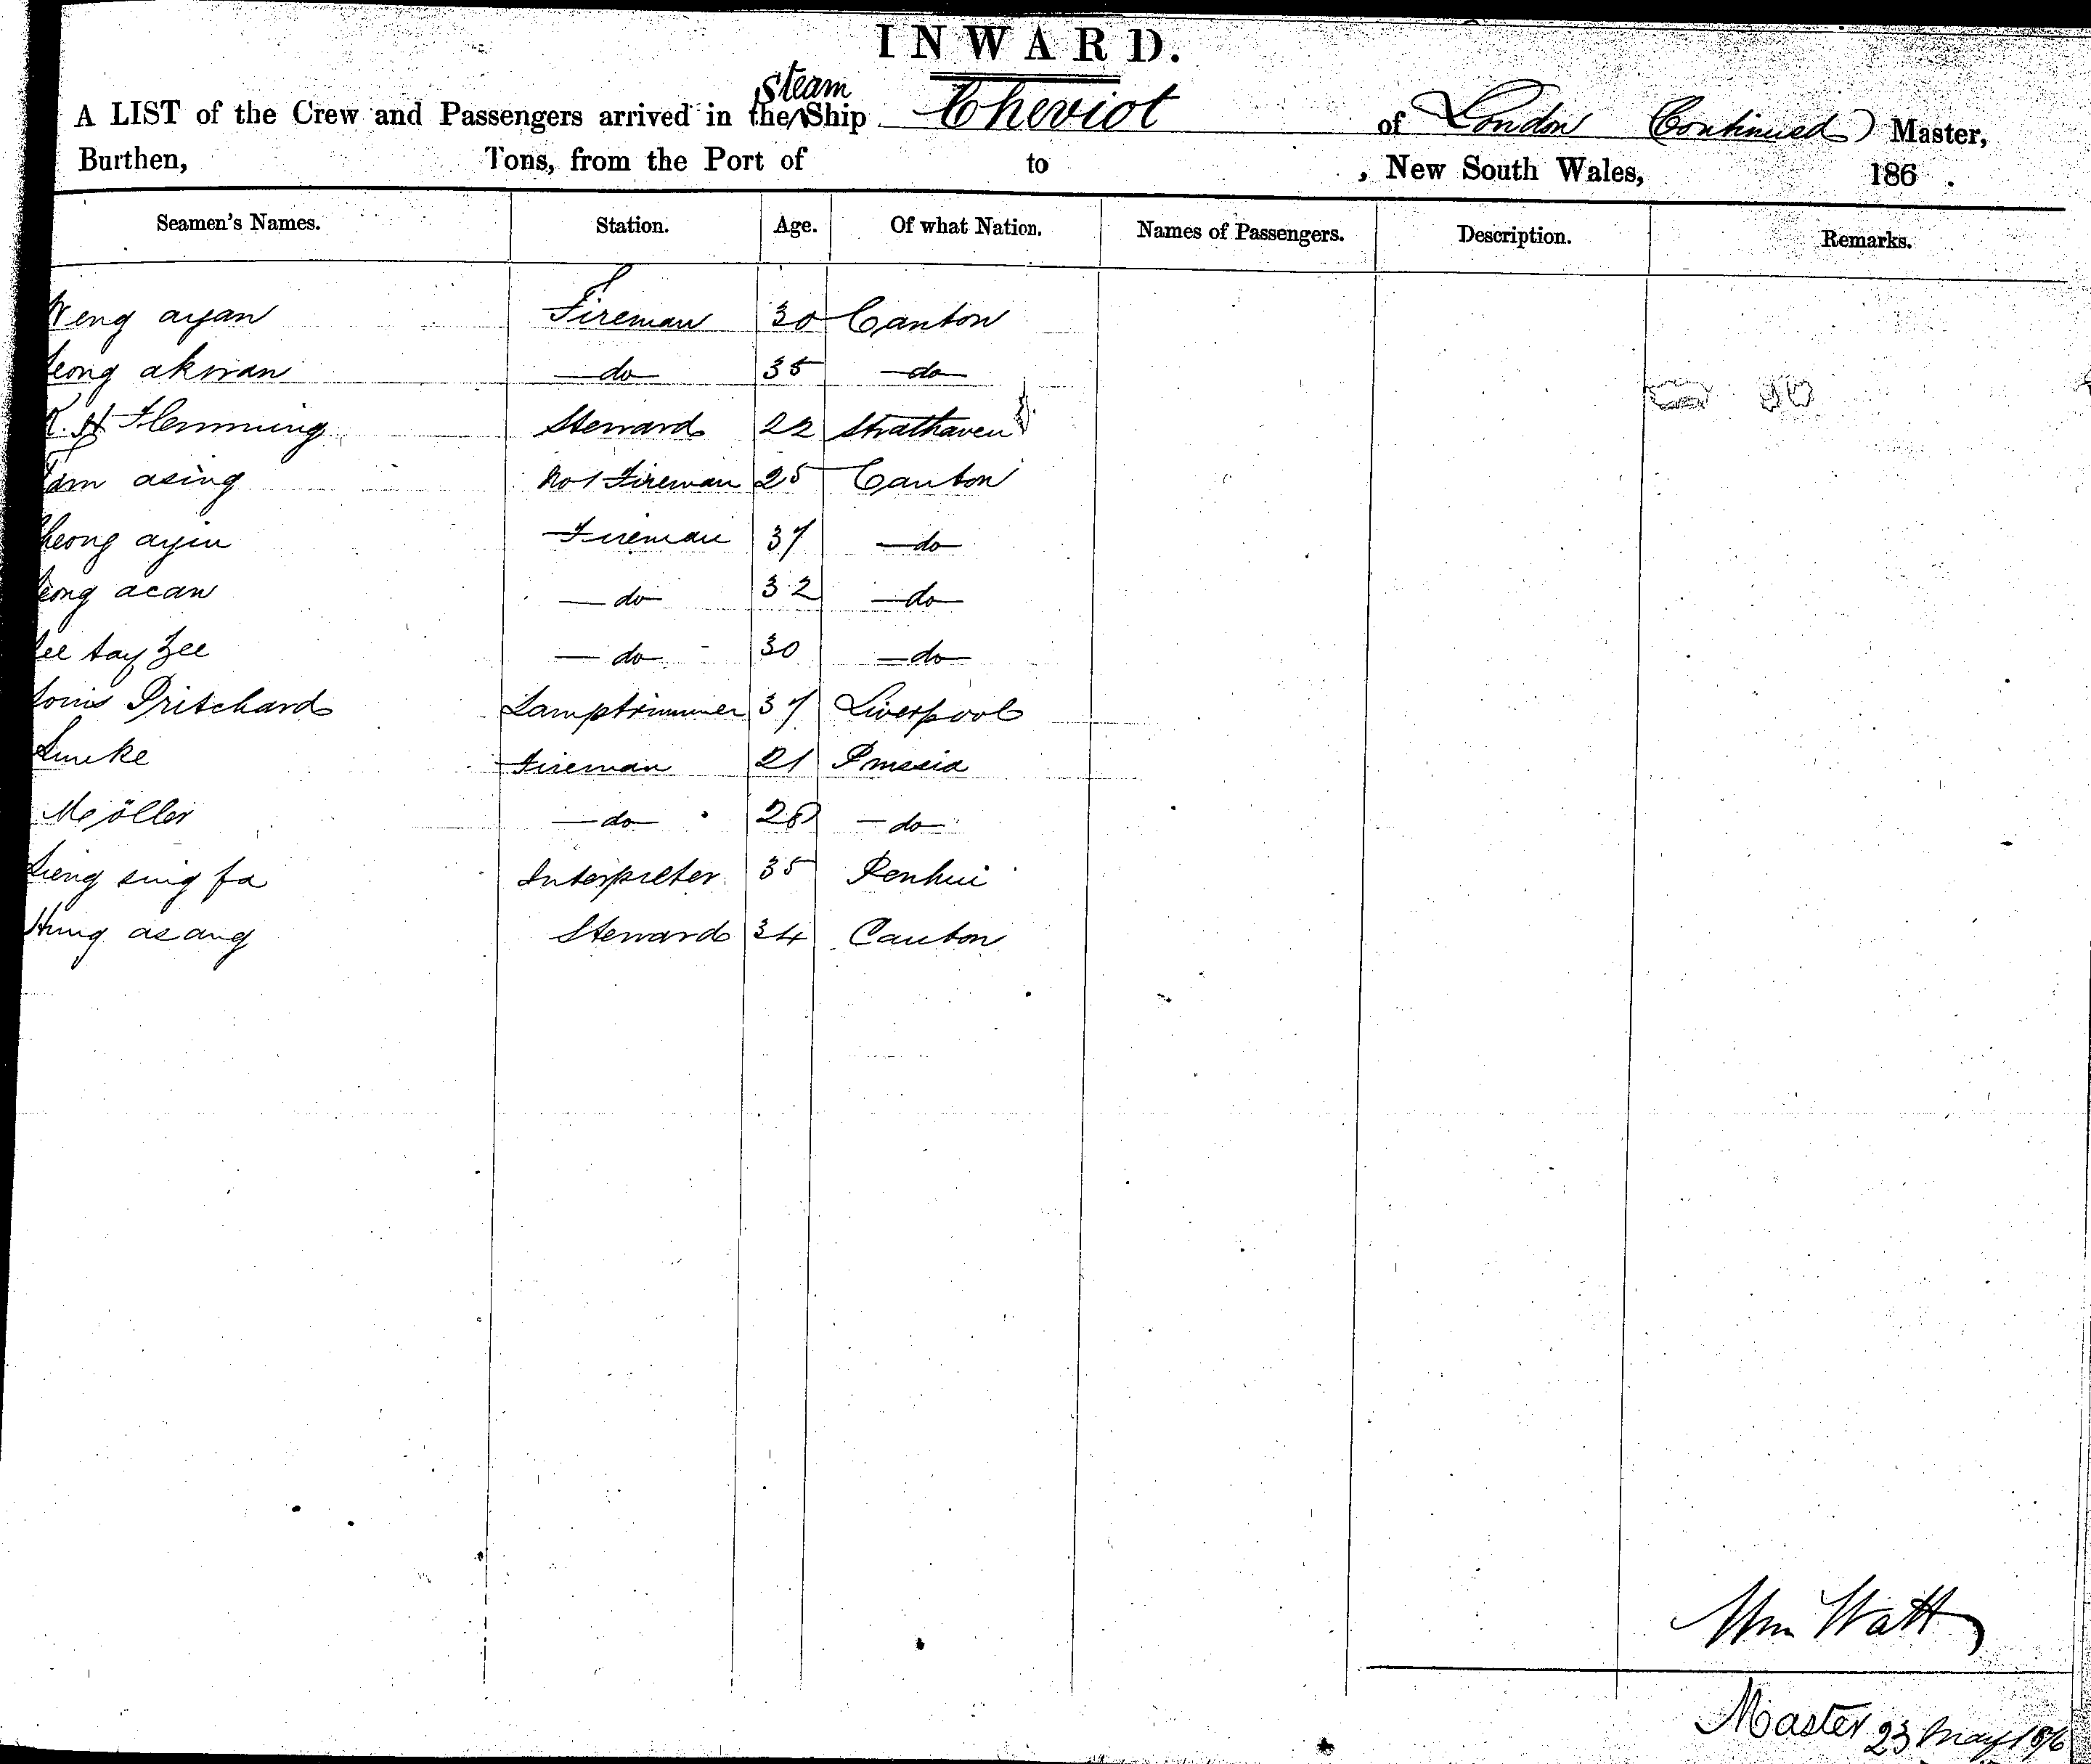 INWARD.
A LIST of the Crew and Passengers arrived in the steam Ship Cheviot of London (Continued) Master,
Burthen, Tons, from the Port of to , New South Wales, 186 .
Seamen's Names. Station. Age. Of what Nation. Names of Passengers. Description. Remarks.
Weng ayan Fireman 30 Canton
Leong akwan do 35 do
R. H Flemming Steward 22 Strathaven
Tam asing No 1 Fireman 25 Canton
Cheong Fireman 37 do
acan do 32 do
do 30 do
Louis Pritchard Lamptrimmer 37 Liverpool
Fireman 21 Prussia
Möller do 28 do
sing fa Interpreter 35
asang Steward 34 Canton
Wm Watt
Master 23 May 1876